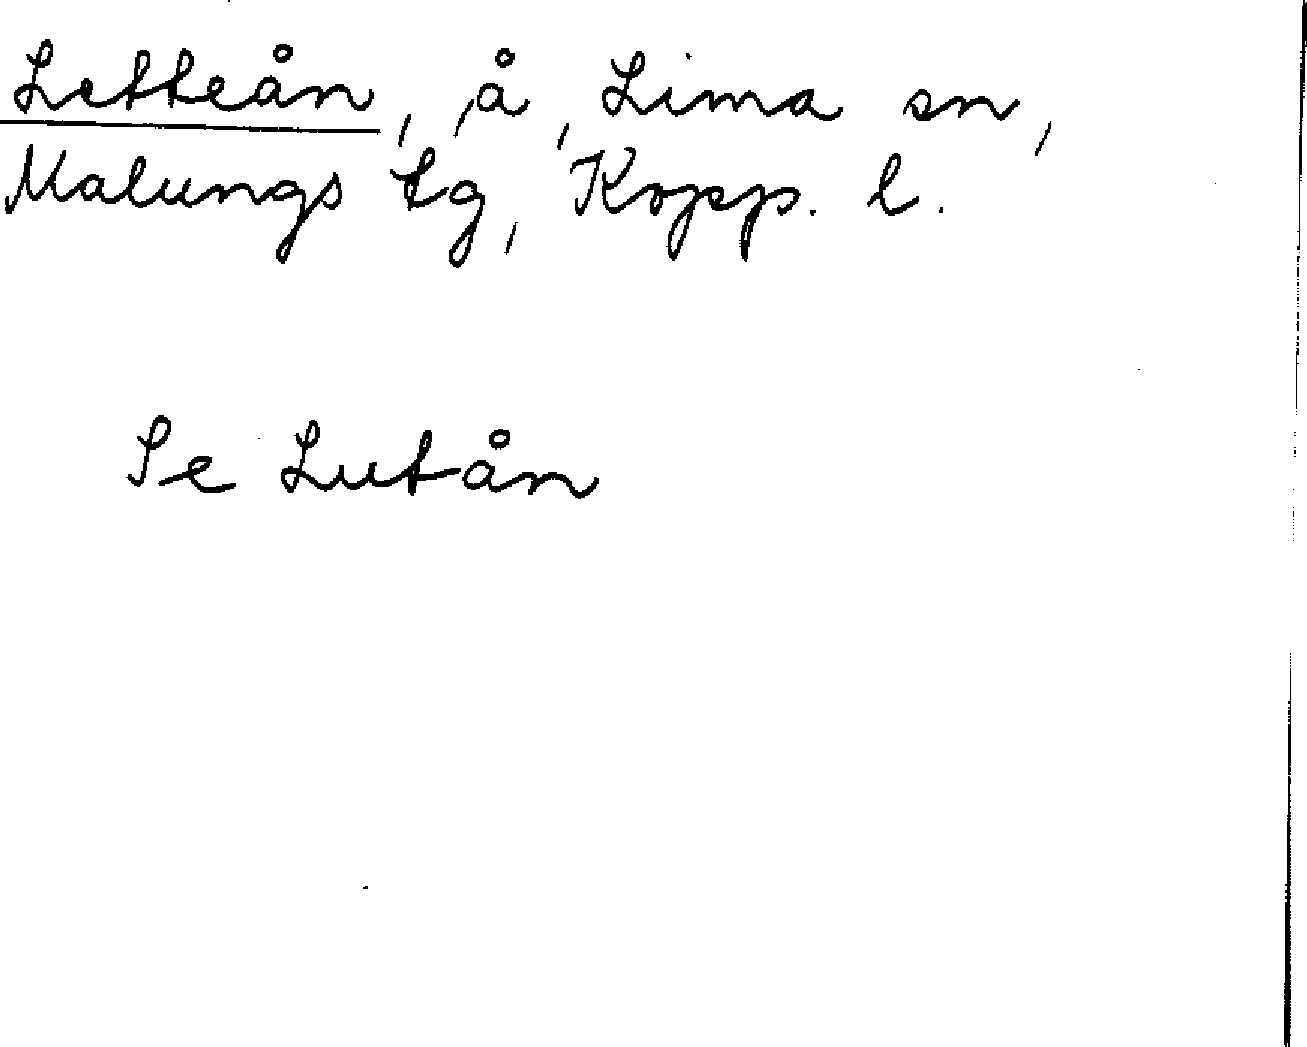 Letteån, ,å, Lima sn,
Malungs tg, Kopp. l.
Se Lutån